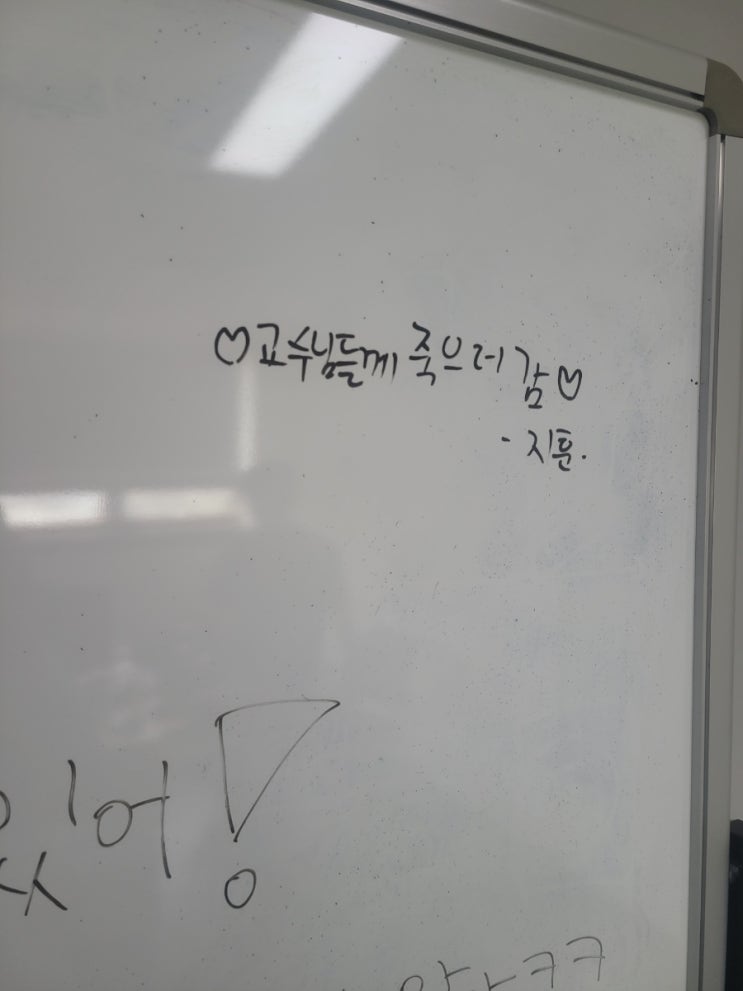 ♡교수님들께 죽으러 감♡
- 지훈.
있어!
ㅋㅋ